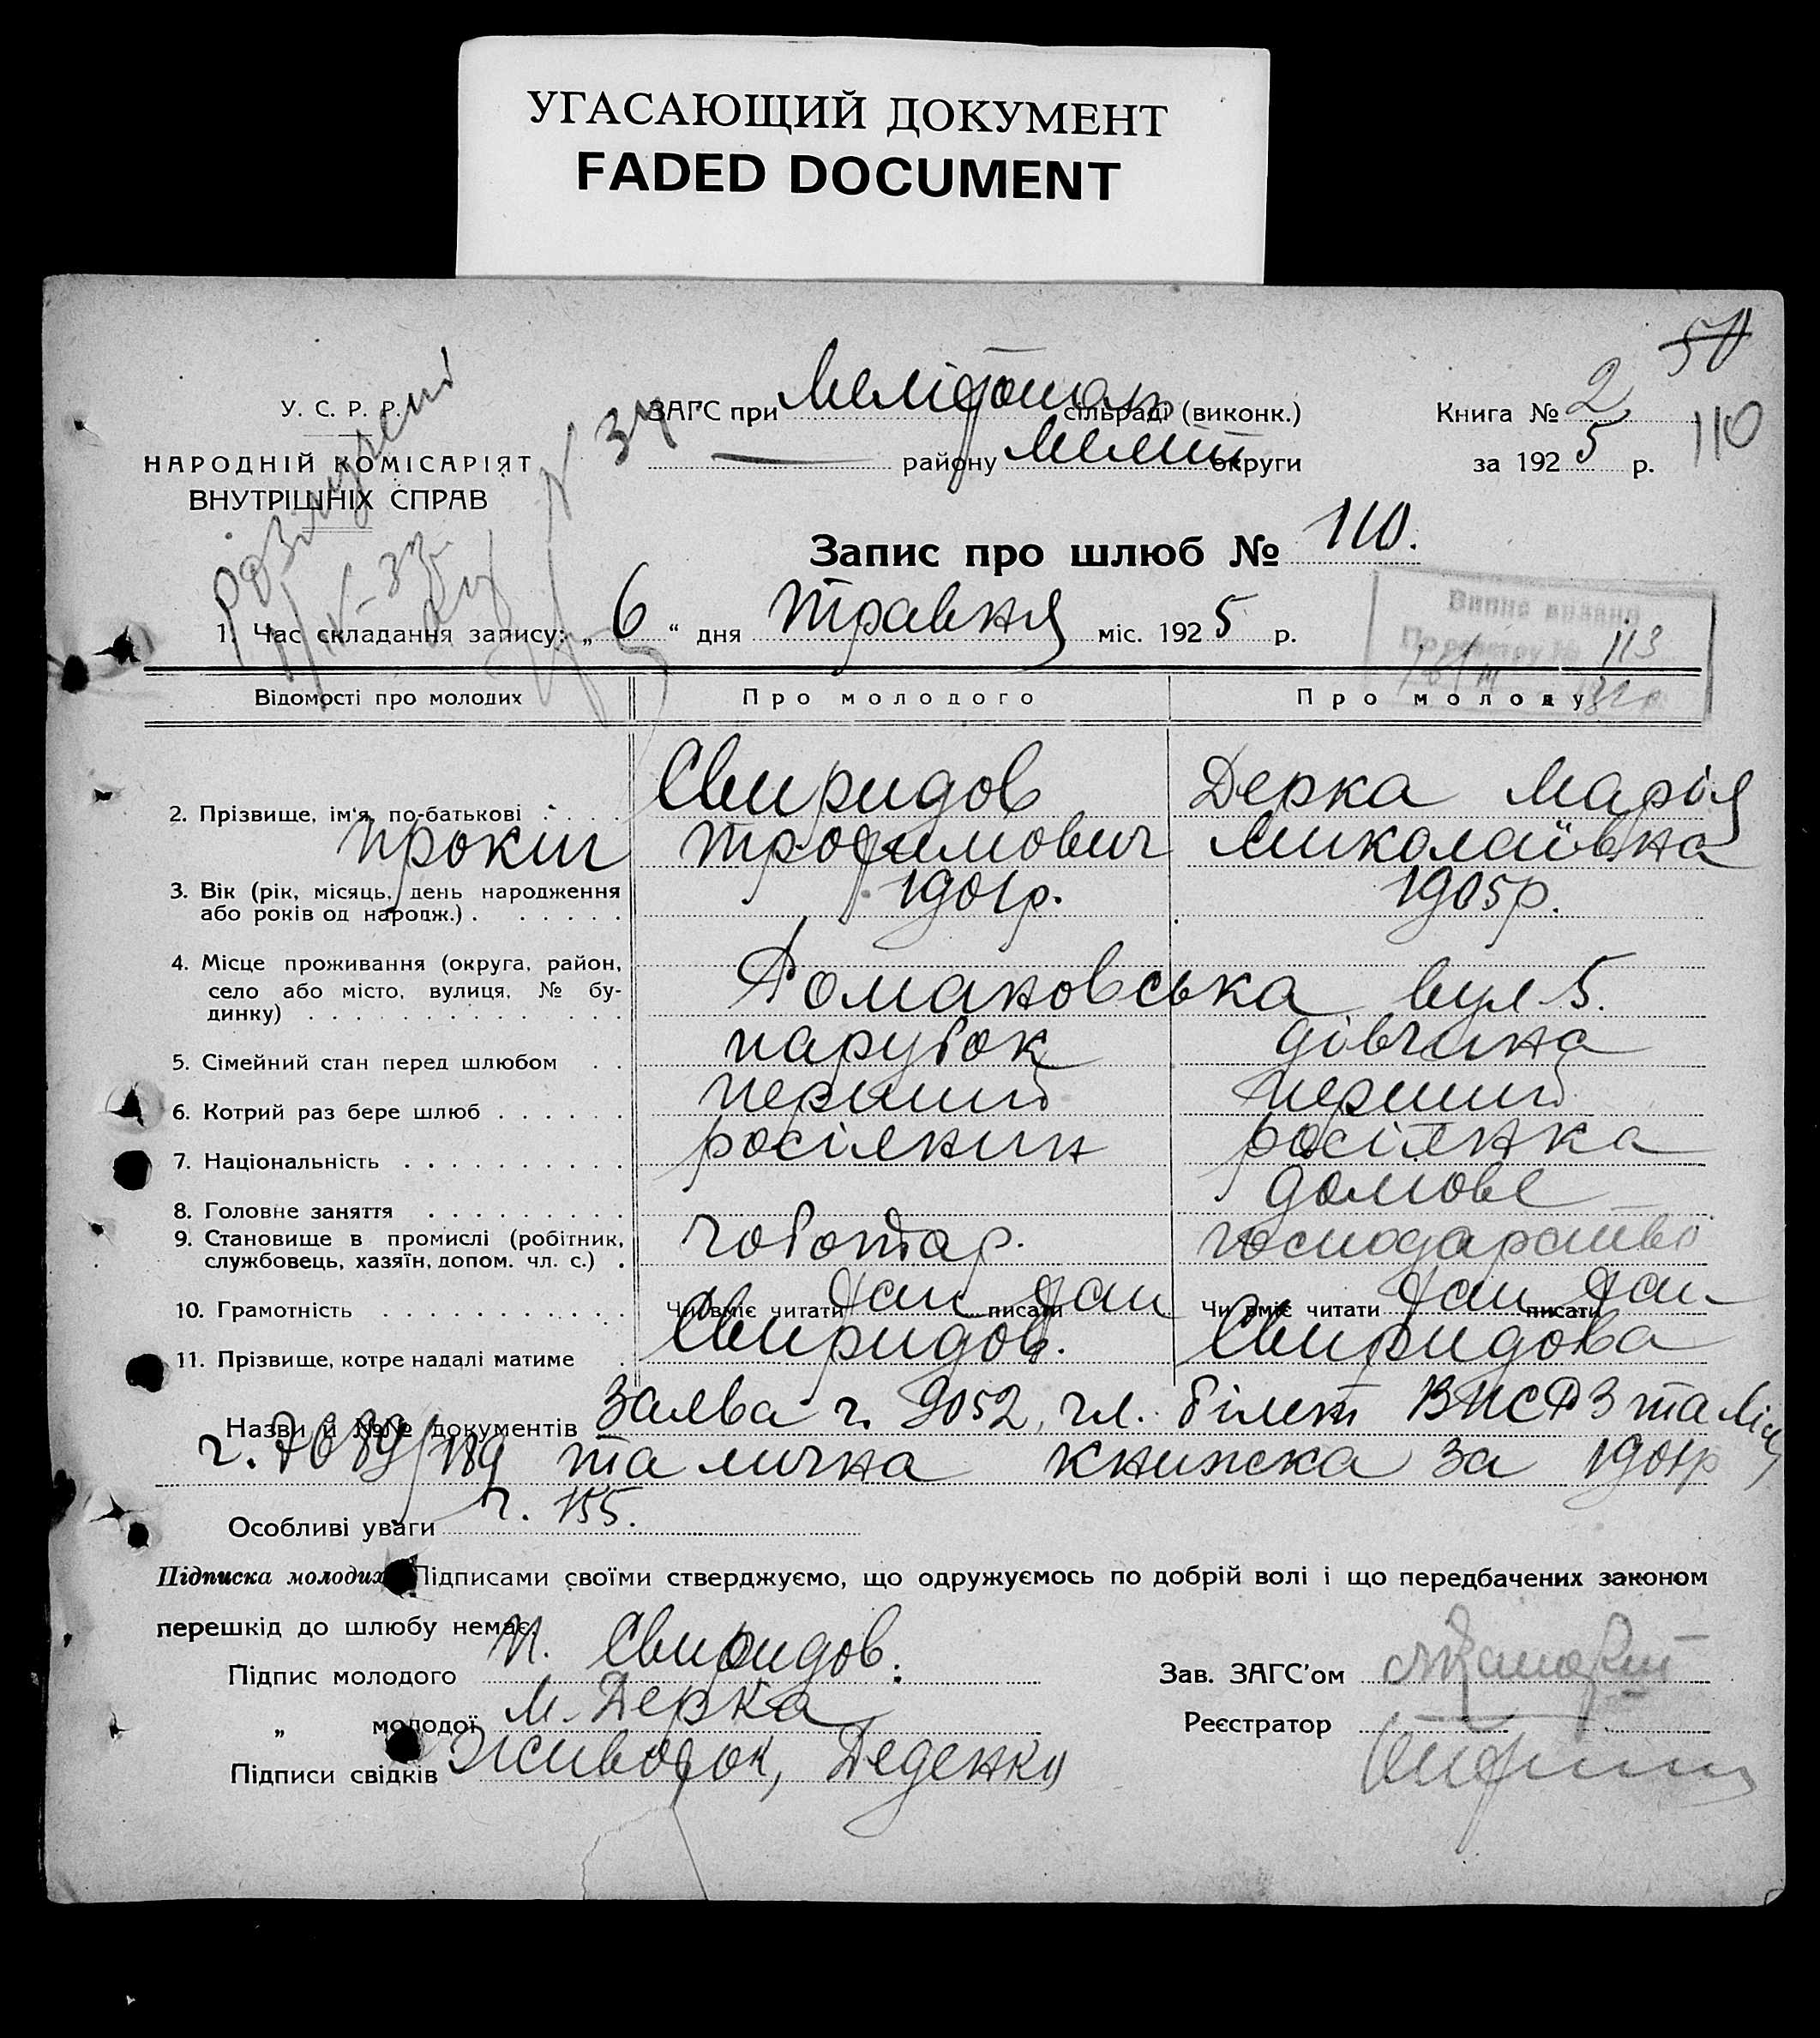 УГАСАЮЩИЙ ДОКУМЕНТ
FADED DOCUMENT
50
У. С. Р. Р.
НАРОДНІЙ КОМІСАРІЯТ
ВНУТРІШНІХ СПРАВ
розлучені
N 34
ЗАГС при Мелітопол. сільраді (виконк.)
— району Меліт. округи
Книга № 2
за 1925 р.
110
Запис про шлюб № 110.
1. Час складання запису: „6“ дня травня міс. 1925 р.
Випис видано
По реєстру № 113
Відомості про молодих Про молодого Про молоду
2. Прізвище, ім'я, по-батькові Свиридов Дерка Марія
Прокіп Трофимович Миколаївна
3. Вік (рік, місяць, день народження
або років од народж.) 1901р. 1905р.
4. Місце проживання (округа, район,
село або місто, вулиця, № бу-
динку) Романовська вул 5.
5. Сімейний стан перед шлюбом парубок дівчина
6. Котрий раз бере шлюб перший перший
7. Національність росіянин росіянка
8. Головне заняття домове
9. Становище в промислі (робітник,
службовець, хазяїн, допом. чл. с.) чоботар. господарство
10. Грамотність Чи вміє читати так писати так Чи вміє читати так писати так
11. Прізвище, котре надалі матиме Свиридов. Свиридова
Назви й №№ документів Заява ч. 9052, чл. білет ВПСРЗ та
ч. 7089/189 та лична книжка за 1901р
ч. 155.
Особливі уваги
Підписка молодих: Підписами своїми стверджуємо, що одружуємось по добрій волі і що передбачених законом
перешкід до шлюбу немає.
Підпис молодого П. Свиридов.
„ молодої М. Дерка
Підписи свідків Деденко
Зав. ЗАГС'ом
Реєстратор